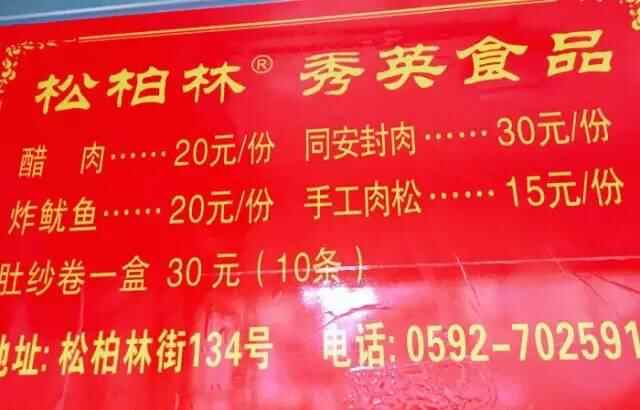 松柏林® 秀英食品
醋 肉······20元/份 同安封肉······30元/份
炸鱿鱼······20元/份 手工肉松······15元/份
肚纱卷一盒 30元(10条)
地址: 松柏林街134号 电话: 0592-702591